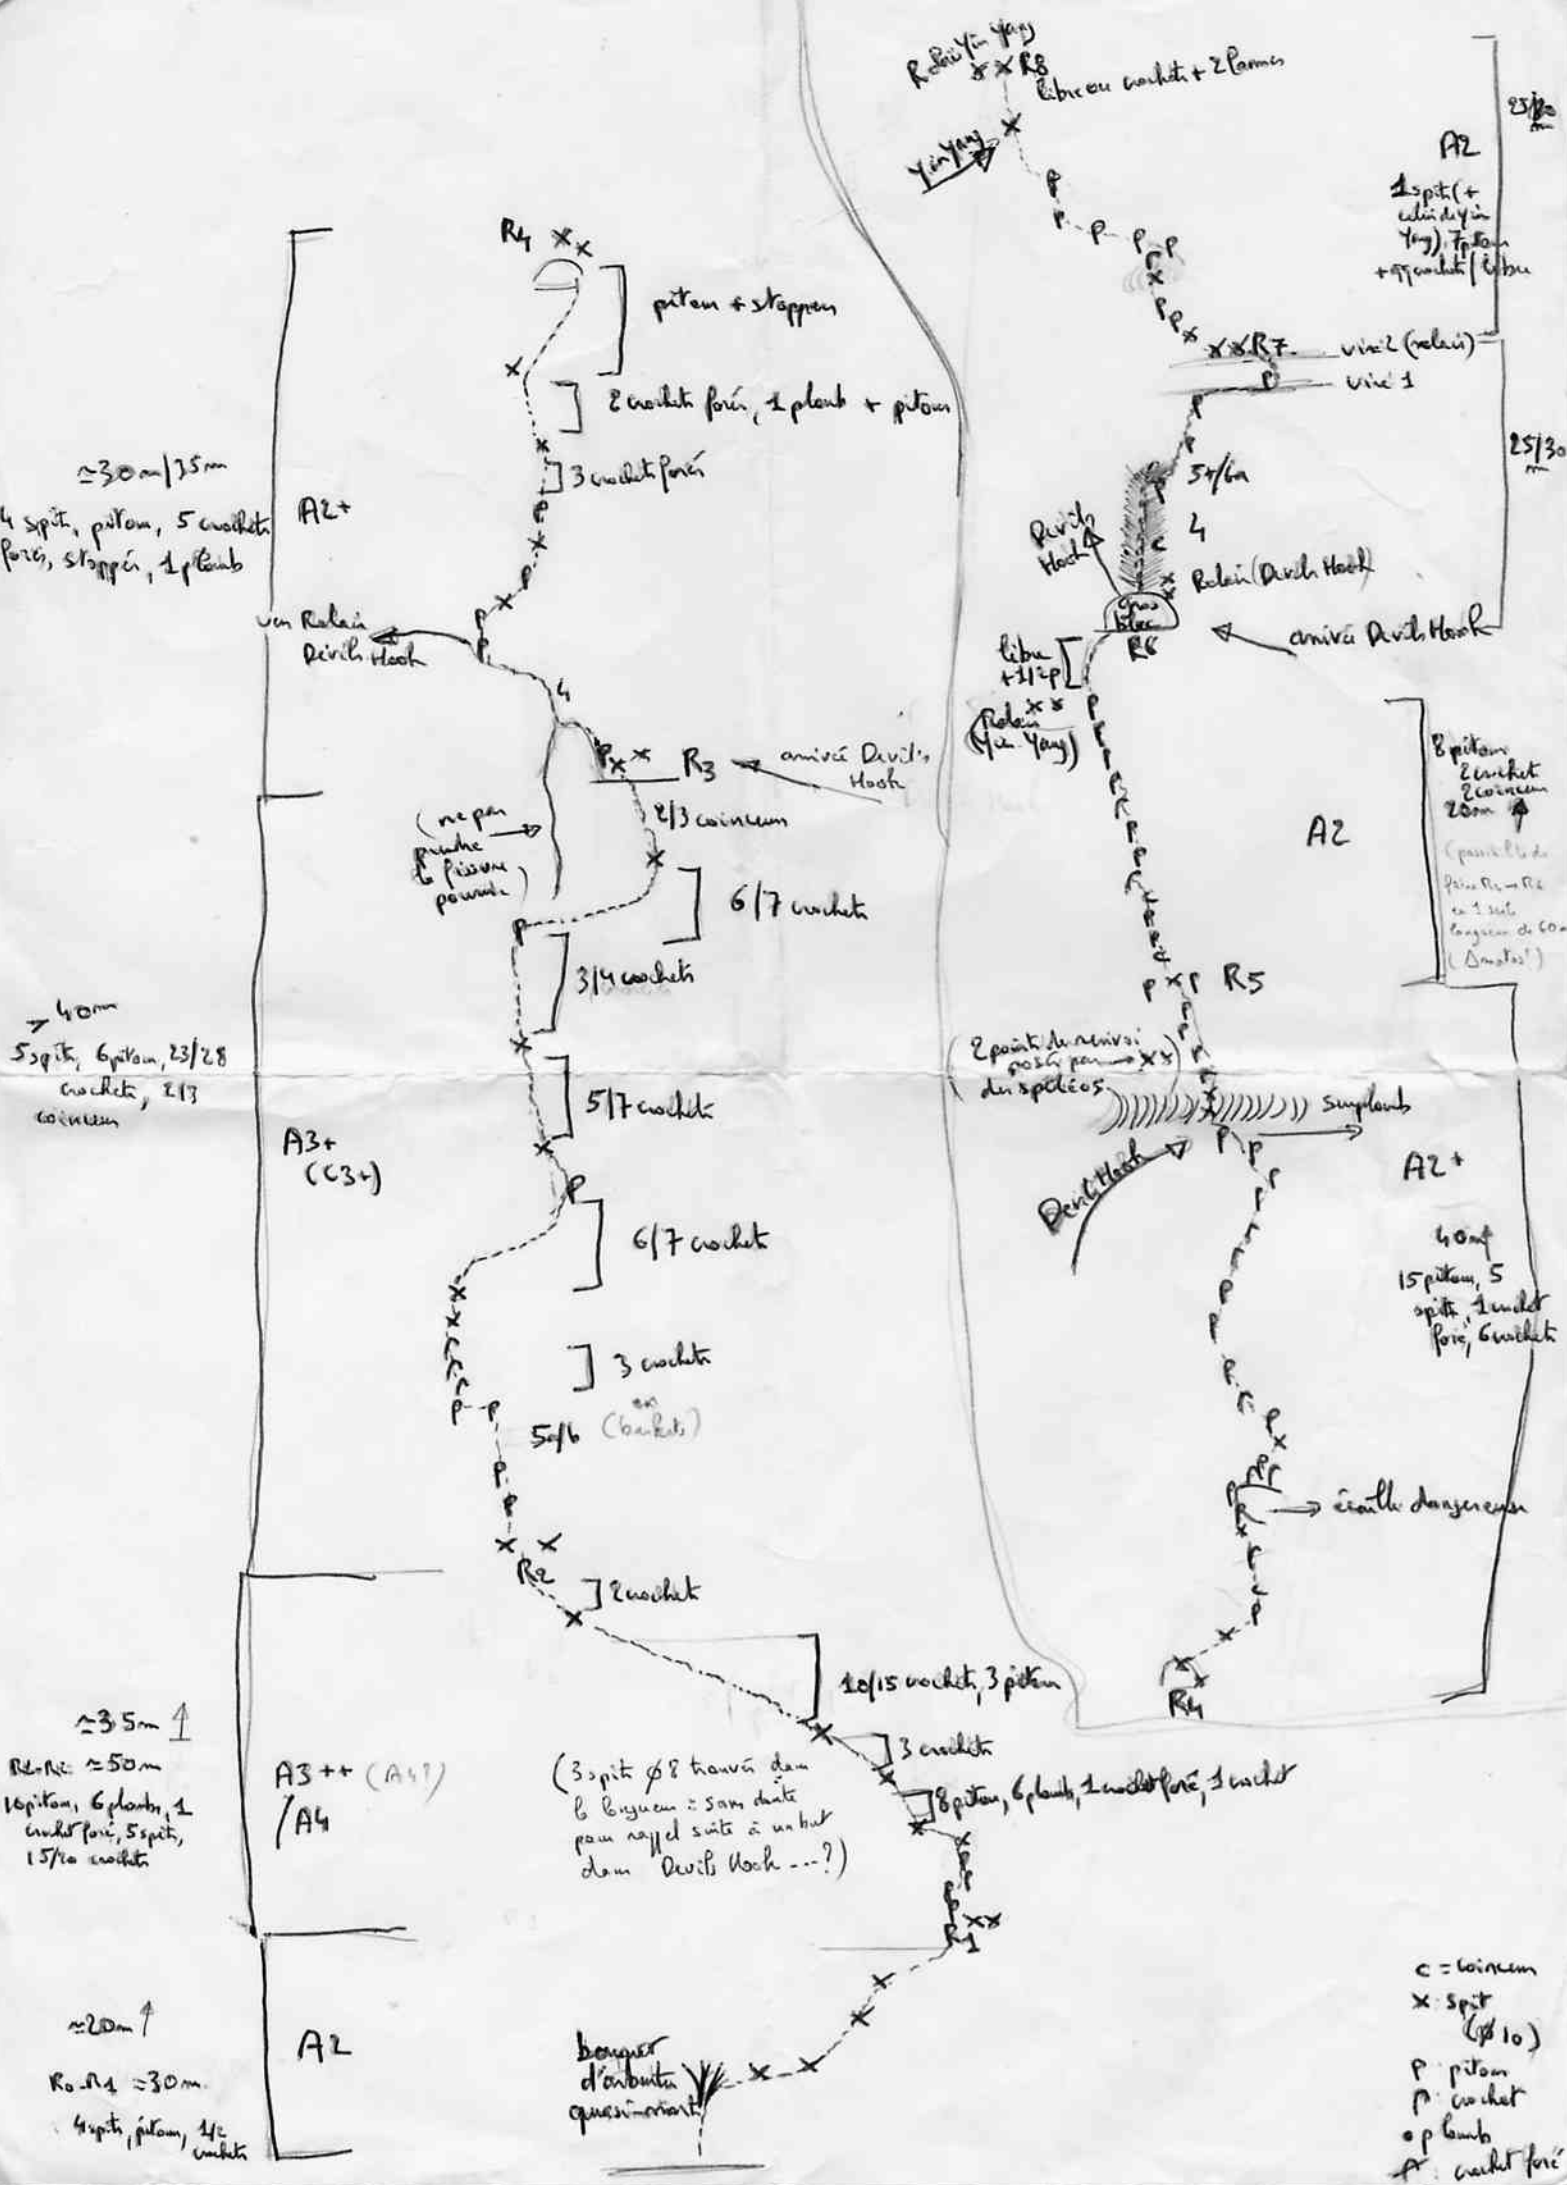 R4
pitons + stoppers
2 crochets forés, 1 plomb + pitons
3 crochets forés
≃30m/35m
4 spits, pitons, 5 crochets
forés, stoppers, 1 plomb
A2+
vers Relais
Devils Hook
4
R3
arrivée Devil's
Hook
2/3 coinceurs
(ne pas
prendre
la fissure
pourrie)
6/7 crochets
3/4 crochets
> 40m
5 spits, 6 pitons, 23/28
crochets, 2/3
coinceurs
5/7 crochets
A3+
(C3+)
6/7 crochets
3 crochets
5a/b
R2
2 crochets
10/15 crochets, 3 pitons
≃35m ↑
R1-R2 ≃50m
10 pitons, 6 plombs, 1
crochet foré, 5 spits,
15/20 crochets
A3++ (A4?)
/A4
3 crochets
8 pitons, 6 plombs, 1 crochet foré, 1 crochet
(3 spits ø8 trouvés dans
la longueur = sans doute
pour rappel suite à un but
dans Devils Hook ...?)
R1
≃20m ↑
R0-R1 ≃30m
4 spits, pitons, 1/2
crochets
A2
bouquet
d'arbustes
quasi-mort
Relais Yin Yang
R8
libre ou crochets + 2 larmes
Yin Yang
A2
1 spit (+
celui de Yin
Yang), 7 pitons
+ qq crochets / libre
R7
vire 2 (relais)
vire 1
25/30
m
5+/6a
4
Devils
Hook
Relais (Devils Hook)
gros
bloc
R6
arrivée Devils Hook
libre
+1/2p
Relais
(Yin Yang)
8 pitons
2 crochets
2 coinceurs
20m ↑
(possibilité de
faire R4-R6
en 1 seule
longueur de 60m
A2
R5
(2 points de renvoi
posés par
des spéléos)
surplomb
Devils Hook
A2+
40m
15 pitons, 5
spits, 1 crochet
foré, 6 crochets
écaille dangereuse
R4
c = coinceur
x : spit
(ø10)
p : pitons
crochet
• plomb
crochet foré